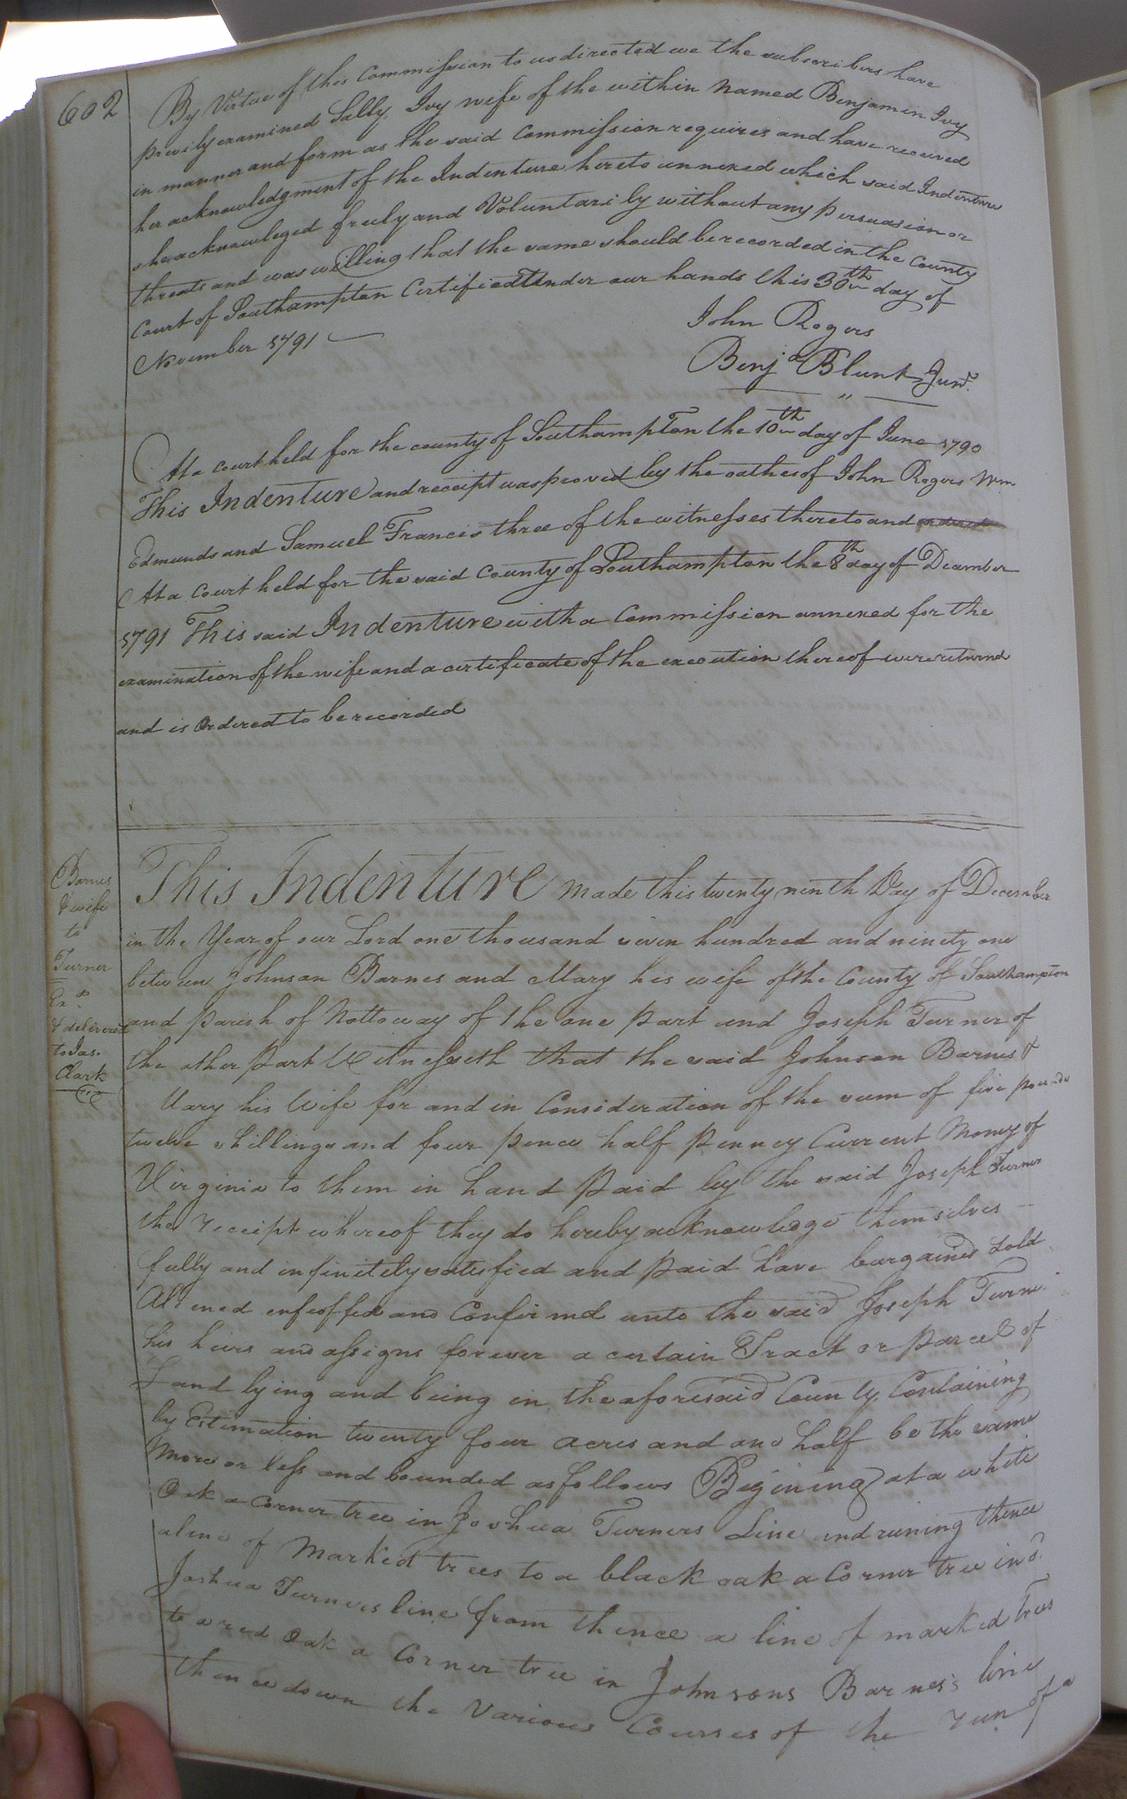 602
By Virtue of this Commission to us directed we the subscribers have
privily examined Sally Ivy wife of the within Named Benjamin Ivy
in manner and form as the said Commission requires and have received
her acknowledgment of the Indenture hereto annexed which said Indenture
she acknowleged freely and Voluntarily without any persuasion or
threats and was willing that the same should be recorded in the County
Court of Southampton Certified Under our hands this 30th day of
November 1791
John Rogers
Benja Blunt Junr.
At a court held for the county of Southampton the 10th day of June 1790
This Indenture and receipt was proved by the oathes of John Rogers Wm
Edmunds and Samuel Francis three of the witnesses thereto and
At a Court held for the said County of Southampton the 8th day of December
1791 This said Indenture with a Commission annexed for the
examination of the wife and a certificate of the execution thereof were returnd
and is Ordered to be recorded
Barnes
& wife
to
Turner
Exd
& delivered
to Jas.
Clark
This Indenture Made this twenty ninth Day of December
in the Year of our Lord one thousand seven hundred and ninety one
between Johnson Barnes and Mary his wife of the County of Southampton
and parish of Nottoway of the one part and Joseph Turner of
the other part Witnesseth that the said Johnson Barnes &
Mary his Wife for and in Consideration of the sum of five pounds
twelve shillings and four pence half penney Current Money of
Virginia to them in hand paid by the said Joseph Turner
the receipt whereof they do hereby acknowledge themselves
fully and infinitely satisfied and paid have bargained Sold
Aliened enfeoffed and Confirmd unto the said Joseph Turner
his heirs and assigns forever a certain Tract or parcel of
Land lying and being in the aforesaid County Containing
by Estimation twenty four acres and one half be the same
More or less and bounded as follows Begining at a white
Oak a corner tree in Joshua Turners Line and runing thence
a line of Marked trees to a black oak a Corner tree in sd.
Joshua Turners line from thence a line of marked trees
to a red Oak a Corner tree in Johnsons Barnes's line
thence down the Various Courses of the run of a